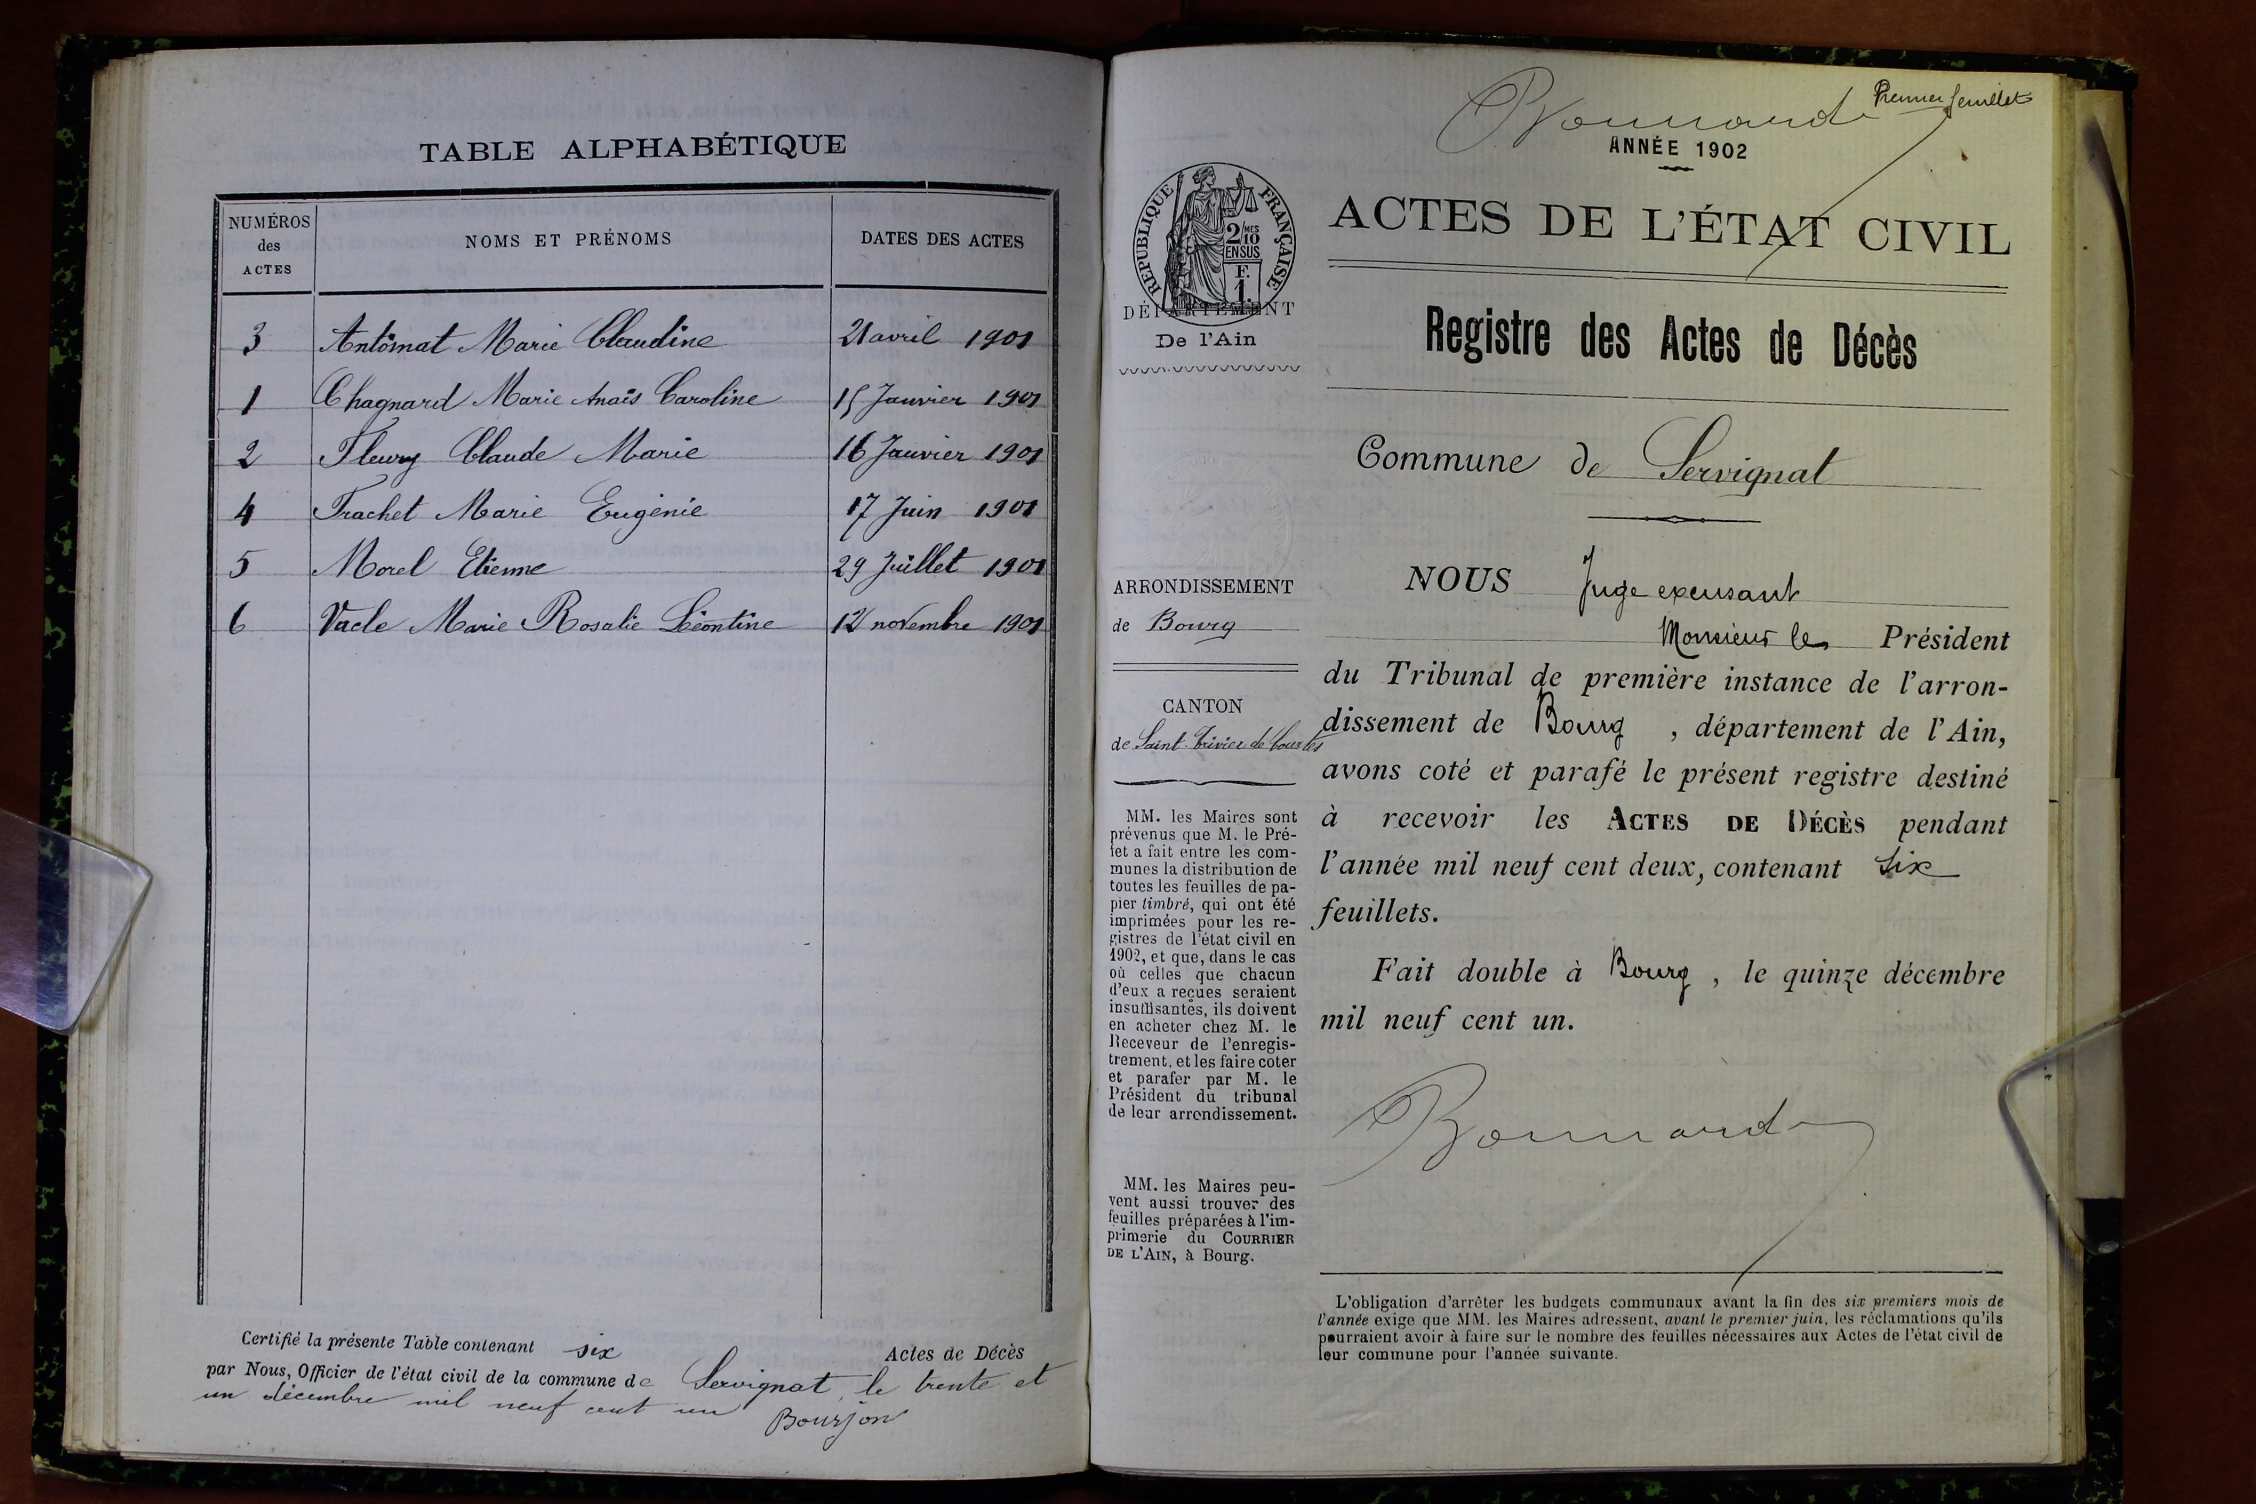 TABLE ALPHABÉTIQUE
NUMÉROS
des
ACTES
NOMS ET PRÉNOMS
DATES DES ACTES
3 Antoinat Marie Claudine 21 avril 1901
1 Chagnard Marie Anaïs Caroline 15 Janvier 1901
2 Fleury Claude Marie 16 Janvier 1901
4 Trachet Marie Eugénie 17 Juin 1901
5 Morel Etienne 29 Juillet 1901
6 Vacle Marie Rosalie Léontine 12 novembre 1901
Certifié la présente Table contenant six Actes de Décès
par Nous, Officier de l'état civil de la commune de Servignat, le trente et
un décembre mil neuf cent un
Bourjon
Bonnard
Premier feuillet
ANNÉE 1902
ACTES DE L'ÉTAT CIVIL
RÉPUBLIQUE FRANÇAISE
2/10 MES
EN SUS
F.
1.
DÉPARTEMENT
De l'Ain
Registre des Actes de Décès
Commune de Servignat
ARRONDISSEMENT
de Bourg
CANTON
de Saint-Trivier de Courtes
MM. les Maires sont
prévenus que M. le Pré-
fet a fait entre les com-
munes la distribution de
toutes les feuilles de pa-
pier timbré, qui ont été
imprimées pour les re-
gistres de l'état civil en
1902, et que, dans le cas
où celles que chacun
d'eux a reçues seraient
insuffisantes, ils doivent
en acheter chez M. le
Receveur de l'enregis-
trement, et les faire coter
et parafer par M. le
Président du tribunal
de leur arrondissement.
MM. les Maires peu-
vent aussi trouver des
feuilles préparées à l'im-
primerie du COURRIER
DE L'AIN, à Bourg.
NOUS Juge excusant
Monsieur le Président
du Tribunal de première instance de l'arron-
dissement de Bourg, département de l'Ain,
avons coté et parafé le présent registre destiné
à recevoir les ACTES DE DÉCÈS pendant
l'année mil neuf cent deux, contenant six
feuillets.
Fait double à Bourg, le quinze décembre
mil neuf cent un.
Bonnard
L'obligation d'arrêter les budgets communaux avant la fin des six premiers mois de
l'année exige que MM. les Maires adressent, avant le premier juin, les réclamations qu'ils
pourraient avoir à faire sur le nombre des feuilles nécessaires aux Actes de l'état civil de
leur commune pour l'année suivante.